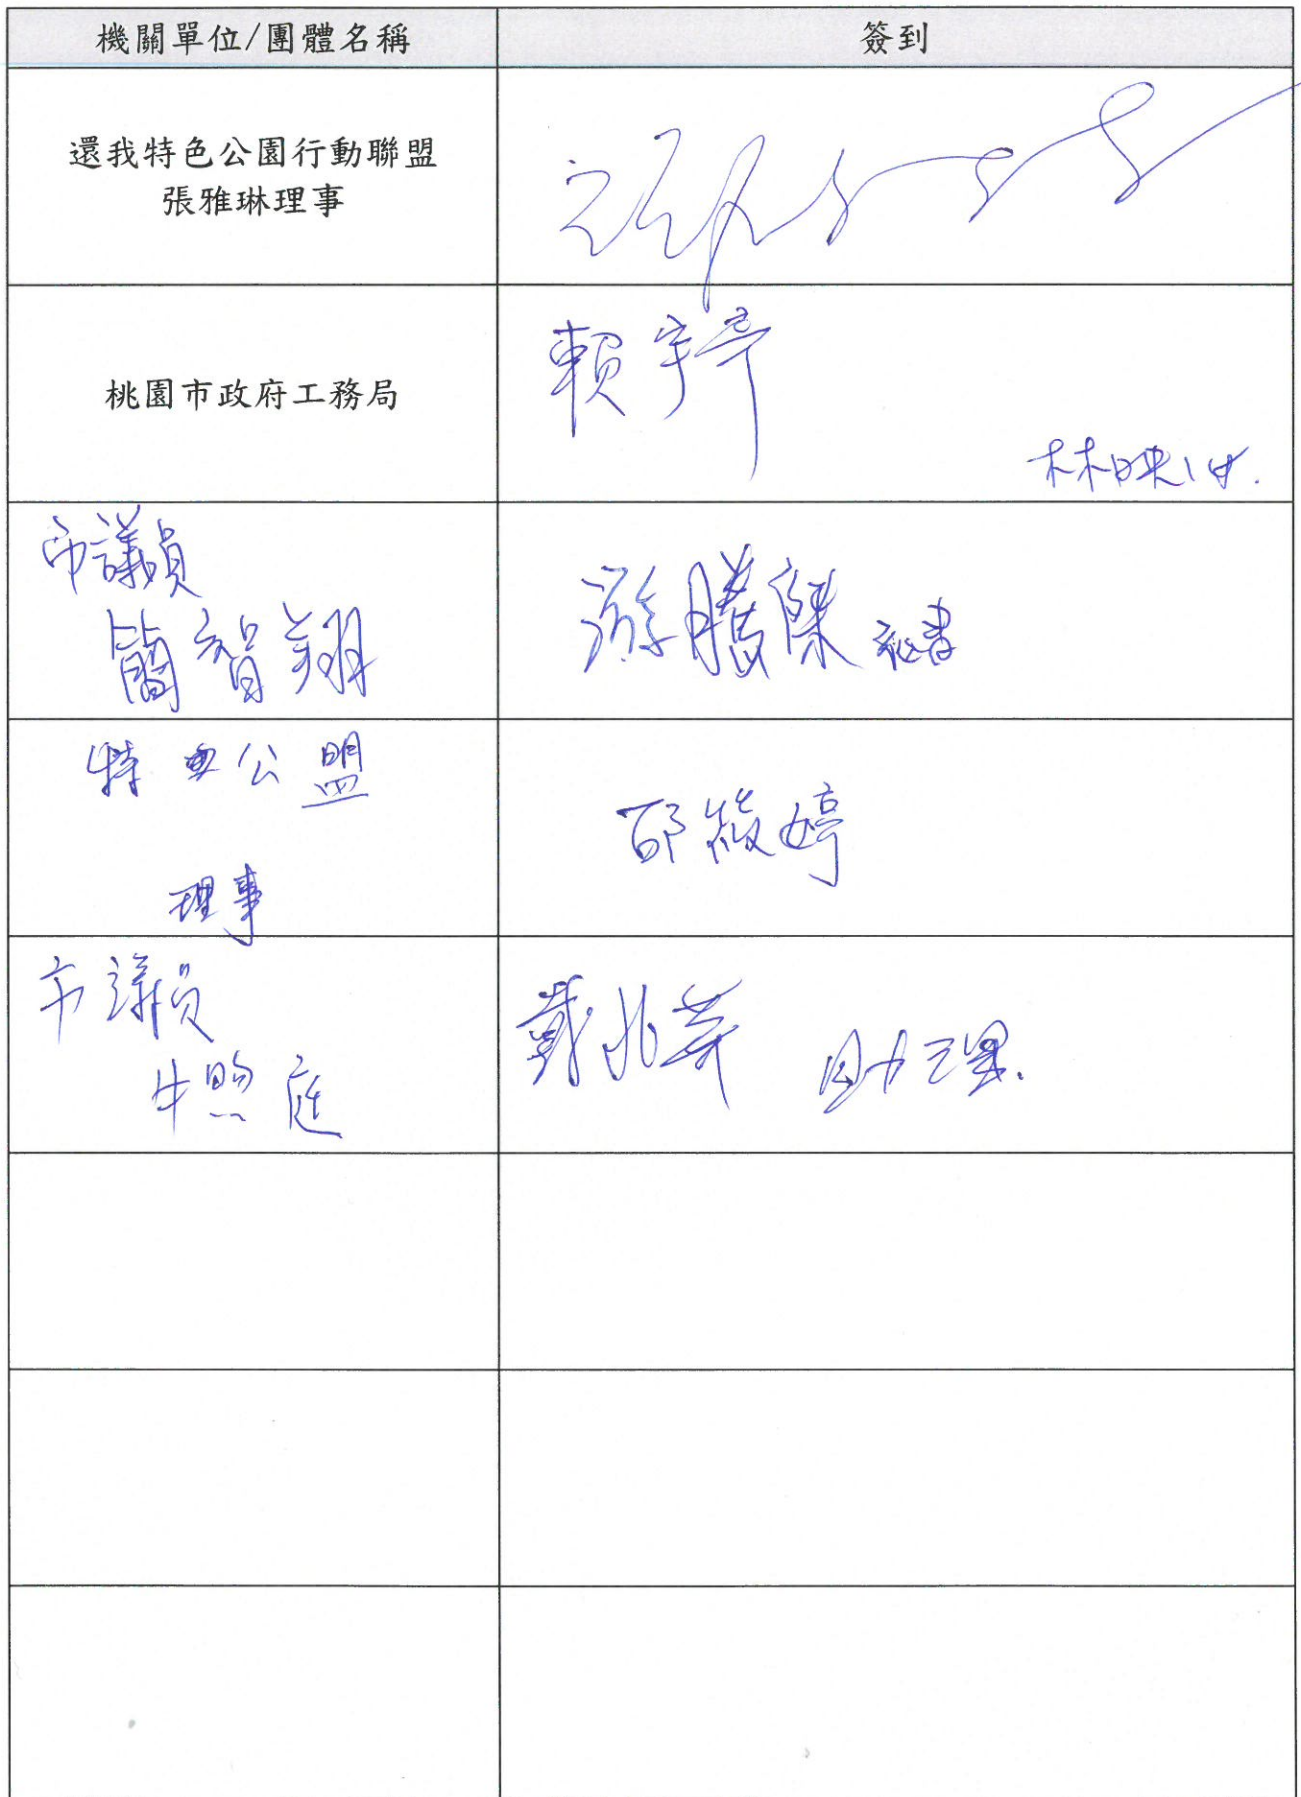 機關單位/團體名稱
簽到
還我特色公園行動聯盟
張雅琳理事
桃園市政府工務局
賴宇
林映
市議員
簡智翔
游騰傑 秘書
特 公盟
理事
邵筱婷
市議員
牛煦庭
戴兆 助理.